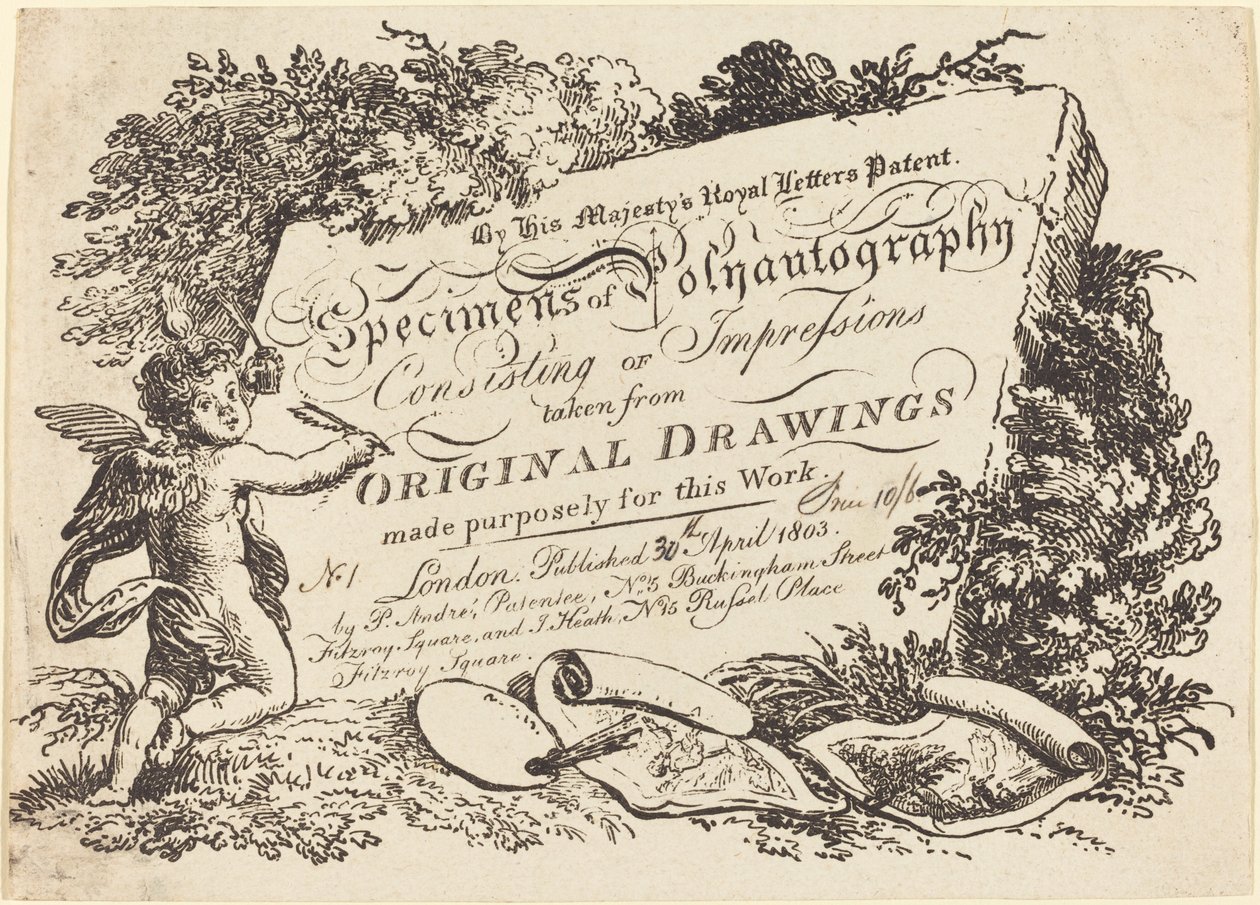 By His Majesty's Royal Letters Patent.
Specimens of Polyautography
Consisting OF Impreſsions
taken from
ORIGINAL DRAWINGS
made purposely for this Work.
Price 10/6
No. 1
London. Published 30th April 1803.
by P. André, Patentee, No. 5 Buckingham Street
Fitzroy Square, and J. Heath, No. 15 Ruſsel Place
Fitzroy Square.